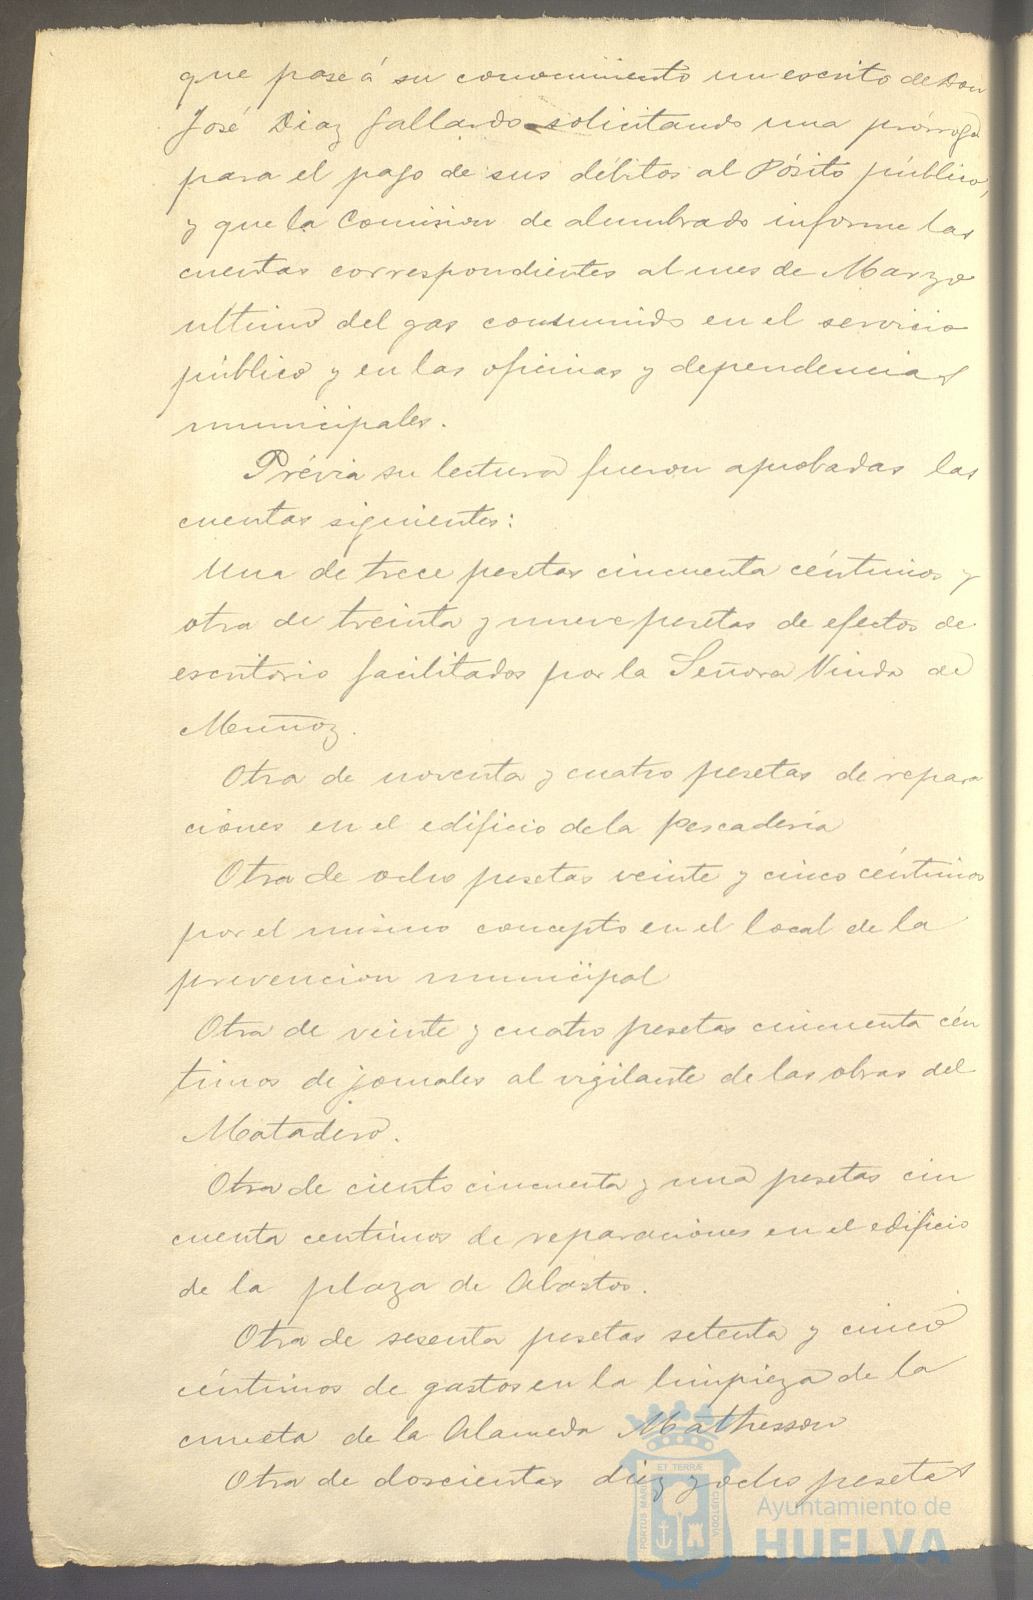 que pase á su conocimiento un escrito de Don
José Diaz Gallardo solicitando una prórroga
para el pago de sus débitos al Pósito público,
y que la Comision de alumbrado informe las
cuentas correspondientes al mes de Marzo
ultimo del gas consumido en el servicio
público y en las oficinas y dependencias
municipales.
Prévia su lectura fueron aprobadas las
cuentas siguientes:
Una de trece pesetas cincuenta céntimos y
otra de treinta y nueve pesetas de efectos de
escritorio facilitados por la Señora Viuda de
Muñoz.
Otra de noventa y cuatro pesetas de repara
ciones en el edificio de la pescaderia
Otra de ocho pesetas veinte y cinco céntimos
por el mismo concepto en el local de la
prevencion municipal
Otra de veinte y cuatro pesetas cincuenta cén
timos de jornales al vigilante de las obras del
Matadero.
Otra de ciento cincuenta y una pesetas cin
cuenta centimos de reparaciones en el edificio
de la plaza de Abastos.
Otra de sesenta pesetas setenta y cinco
céntimos de gastos en la limpieza de la
cuneta de la Alameda Mathesson
Otra de doscientas diez y ocho pesetas
ET TERRÆ
PORTUS MARIS
CUSTODIA
Ayuntamiento de
HUELVA